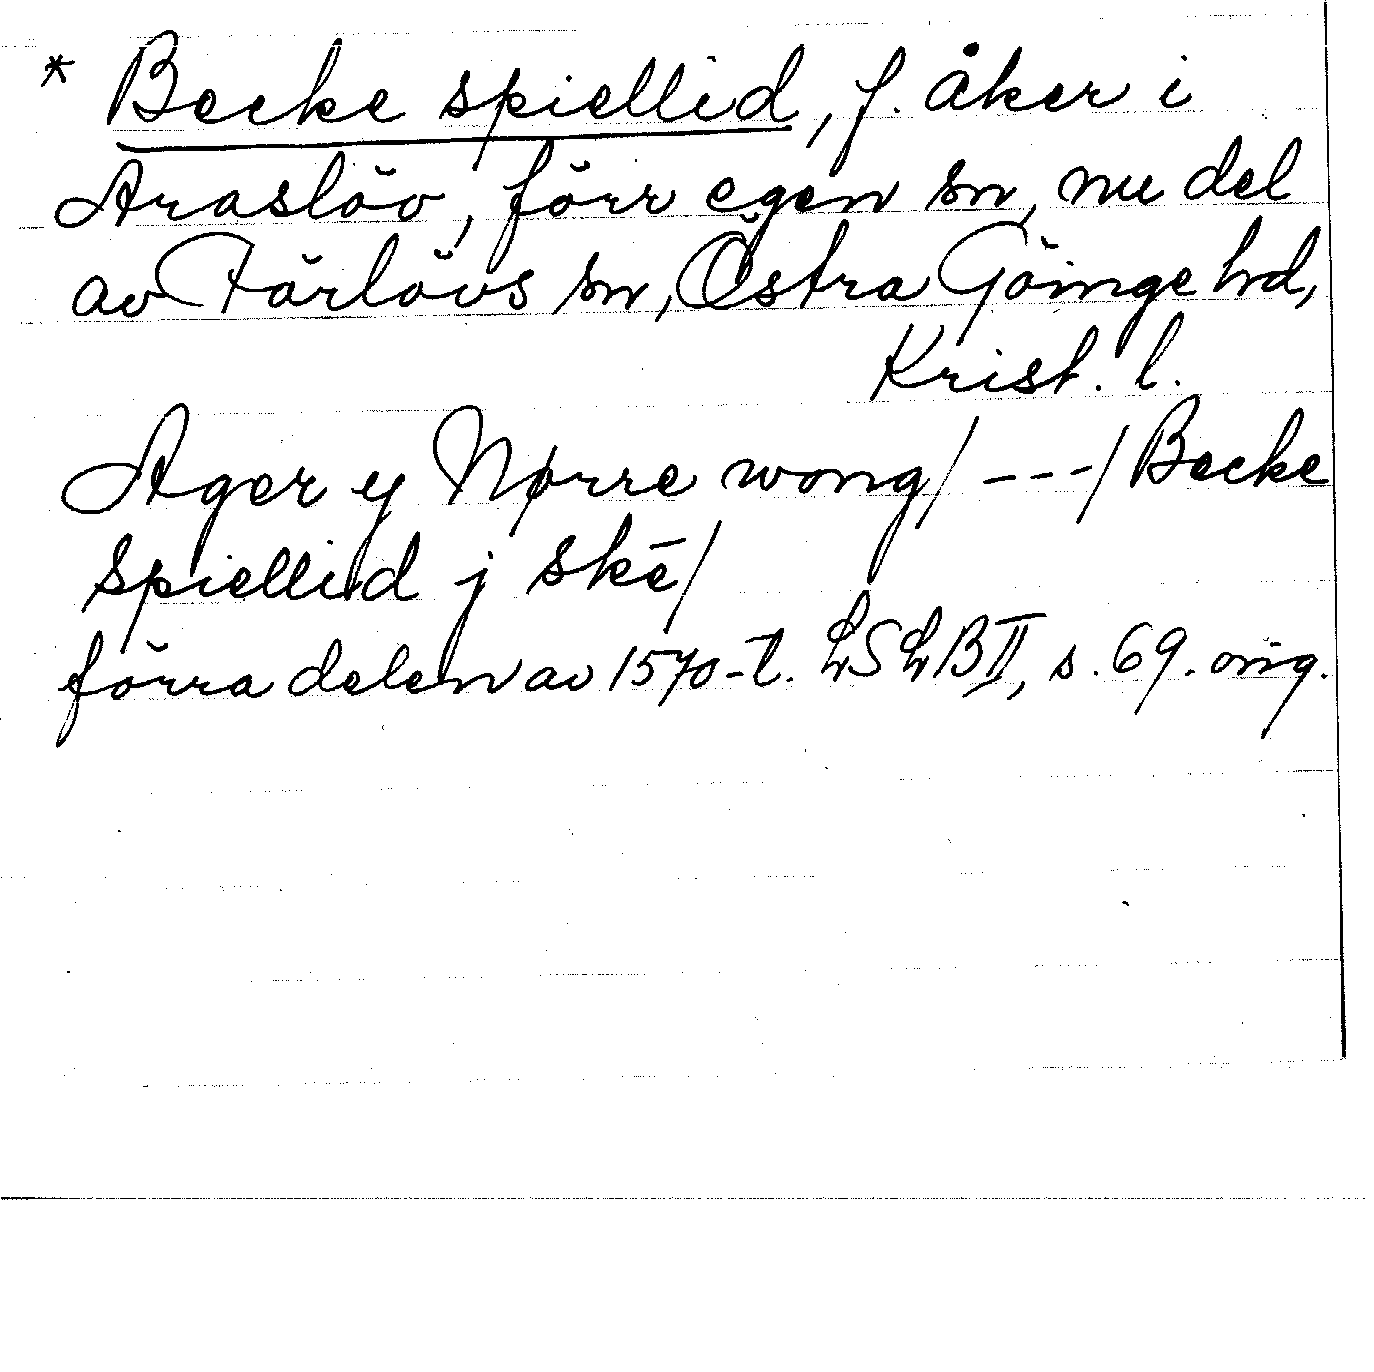 * Becke spiellid, f. åker i
Araslöv, förr egen sn, nu del
av Färlövs sn, Östra Göinge hd,
Krist. l.
Ager y Nørre wong/---/Becke
spiellid j skē/
förra delen av 1570-t. LSLB II, s. 69. orig.